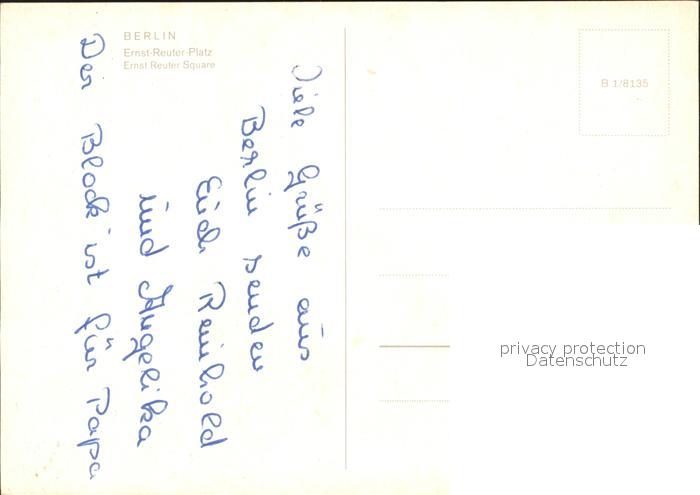 BERLIN
Ernst-Reuter-Platz
Ernst Reuter Square
B 1/8135
Viele Grüße aus
Berlin senden
Euch Reinhold
und Angelika
Der Block ist für Papa
privacy protection
Datenschutz